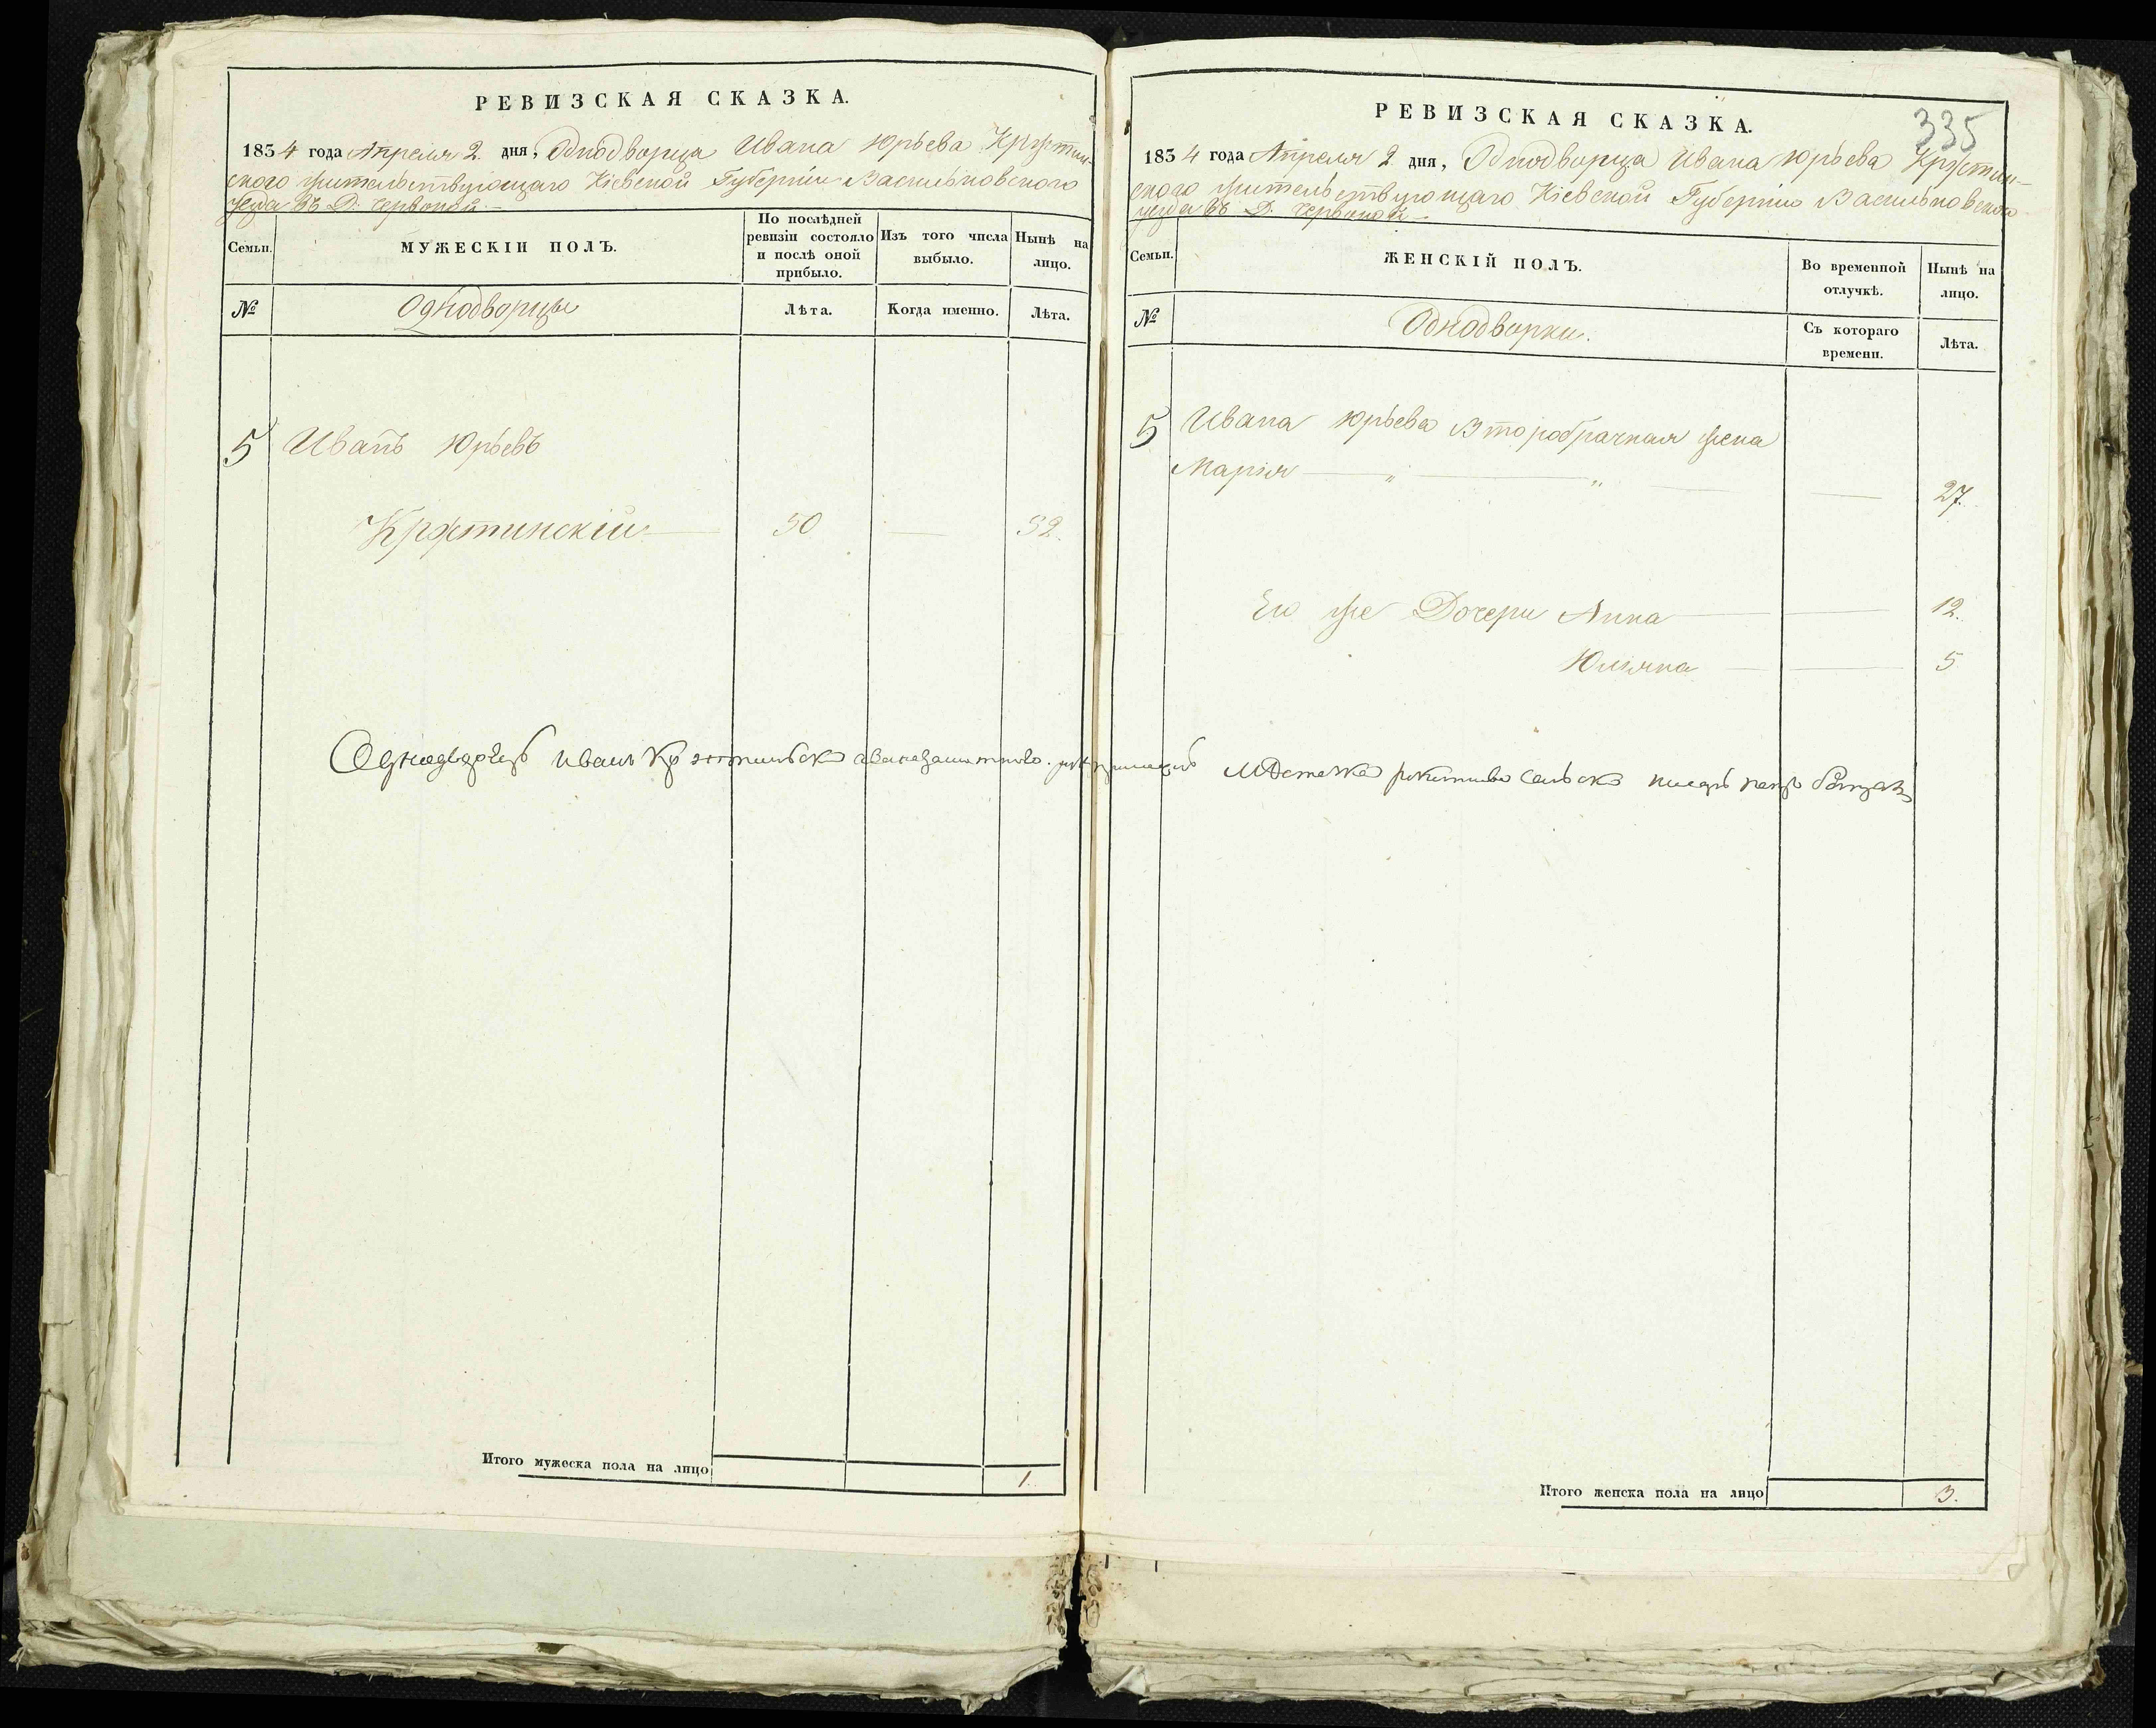 РЕВИЗСКАЯ СКАЗКА.
1834 года Апреля 2. дня, Однодворца Ивана Юрьева Кржтин-
ского жительствующаго Кіевской Губерніи Васильковского
уезда въ Д: Червоной.-
Семьи.
МУЖЕСКІЙ ПОЛЪ.
По послѣдней ревизіи состояло и послѣ оной прибыло.
Изъ того числа выбыло.
Нынѣ на лицо.
№
Однодворцы
Лѣта.
Когда именно.
Лѣта.
5 Иванъ Юрьевъ
Кржтинскій 50 — 52.
Однодворецъ Иванъ
Итого мужеска пола на лицо 1.
335
РЕВИЗСКАЯ СКАЗКА.
1834 года Апреля 2 дня, Однодворца Ивана Юрьева Кржтин-
ского жительствующаго Кіевской Губерніи Васильковского
уезда въ Д. Червоной
Семьи.
ЖЕНСКІЙ ПОЛЪ.
Во временной отлучкѣ.
Нынѣ на лицо.
№
Однодворки.
Съ котораго времени.
Лѣта.
5 Ивана Юрьева Второбрачная жена
Марія — „ — „ — — 27.
Его же Дочери Анна — — 12.
Юліяна — — 5
Итого женска пола на лицо 3.